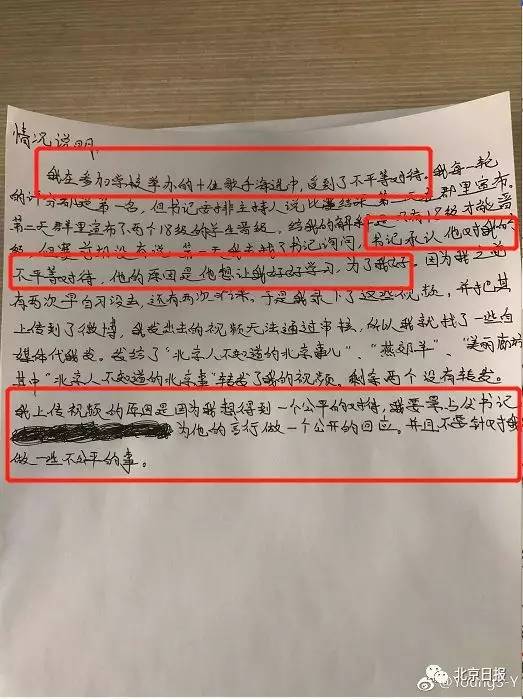 情况说明
我在参加学校举办的十佳歌手海选中，受到了不平等对待。我每一轮
的评分都是第一名，但书记安排主持人说比赛结果第二天在群里宣布。
第二天群里宣布了两个18级的学生晋级，给我的解释是只有18级才能晋
级，但赛前没有说，第二天我去找了书记询问，书记承认他对我的
不平等对待，他的原因是他想让我好好学习，为了我好。因为我之前
有两次早自习没去，还有两次旷课，于是我录下了这些视频，并把其
上传到了微博，我发出去的视频无法通过审核，所以我就找了一些自
媒体代我发。发给了“北京人不知道的北京事儿”、“燕郊羊”、“美丽廊坊
其中“北京人不知道的北京事”转发了我的视频。剩余两个没有转发。
我上传视频的原因是因为我想得到一个公平的对待，我要求上伏书记
为他的言行做一个公开的回应。并且不要针对我
做一些不公平的事。
北京日报
@YoungS-Y